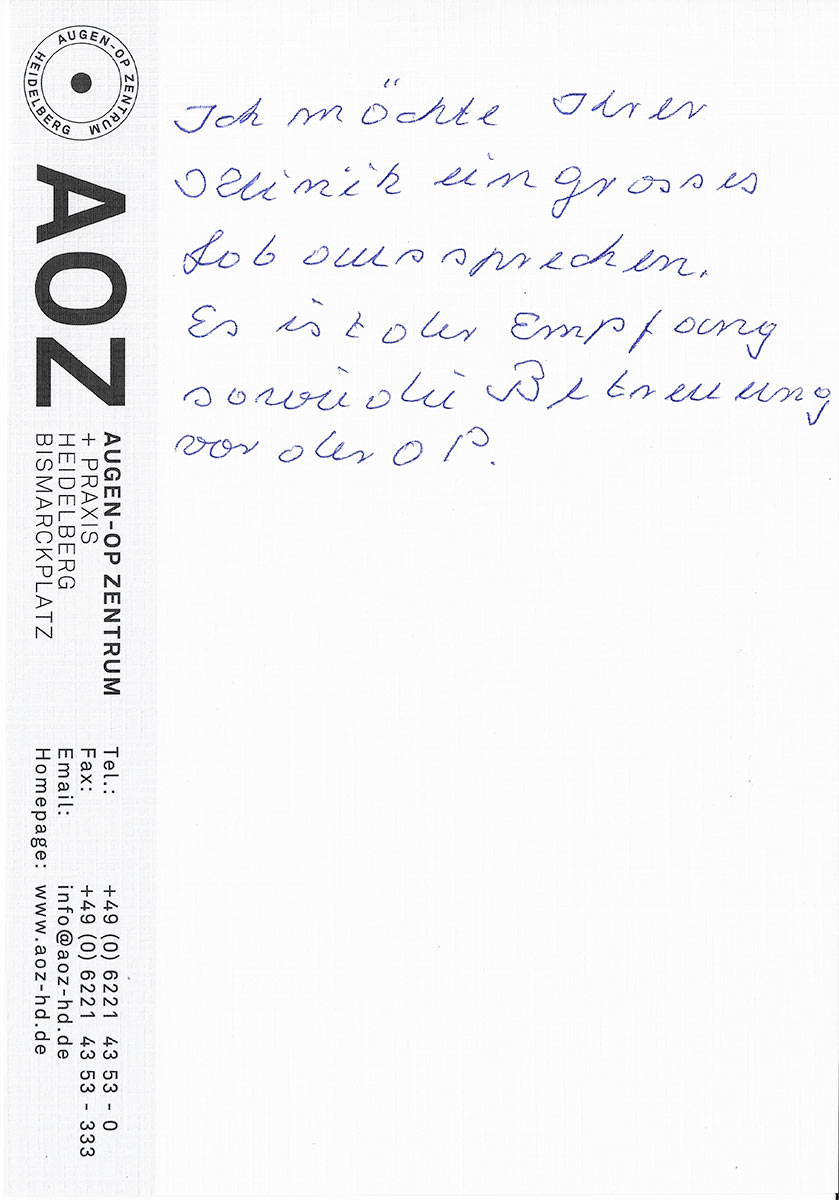 AUGEN-OP ZENTRUM HEIDELBERG
AOZ
AUGEN-OP ZENTRUM
+ PRAXIS
HEIDELBERG
BISMARCKPLATZ
Tel.: +49 (0) 6221 43 53 - 0
Fax: +49 (0) 6221 43 53 - 333
Email: info@aoz-hd.de
Homepage: www.aoz-hd.de
Ich möchte Ihrer
Klinik ein grosses
Lob aussprechen.
Es ist der Empfang
sowie die Betreuung
vor der OP.